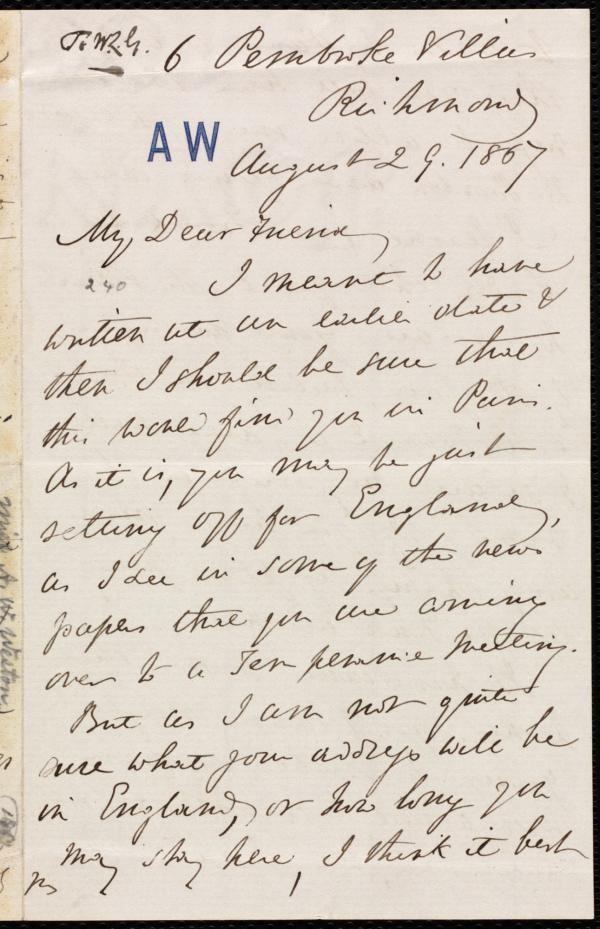 To W.L.G.
6 Pembroke Villas
Richmond
AW
August 29. 1867
My Dear Friend
240
I meant to have
written at an earlier date &
then I should be sure that
this would find you in Paris.
As it is, you may be just
setting off for England,
as I see in some of the news
papers that you are coming
over to a Temperance Meeting.
But as I am not quite
sure what your address will be
in England, or how long you
may stay here, I think it best
A. W. Weston